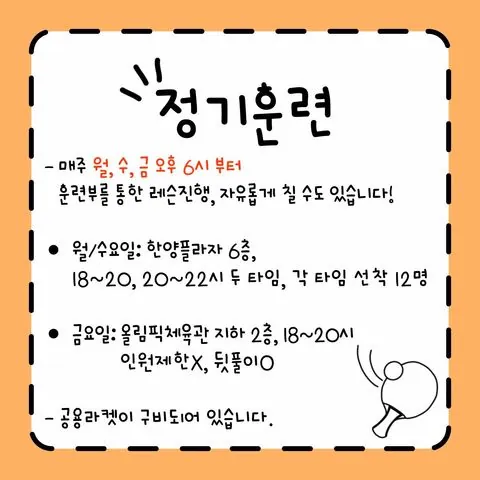 정기훈련
- 매주 월, 수, 금 오후 6시 부터
훈련부를 통한 레슨진행, 자유롭게 칠 수도 있습니다!
• 월/수요일: 한양플라자 6층,
18~20, 20~22시 두 타임, 각 타임 선착 12명
• 금요일: 올림픽체육관 지하 2층, 18~20시
인원제한X, 뒷풀이O
- 공용라켓이 구비되어 있습니다.